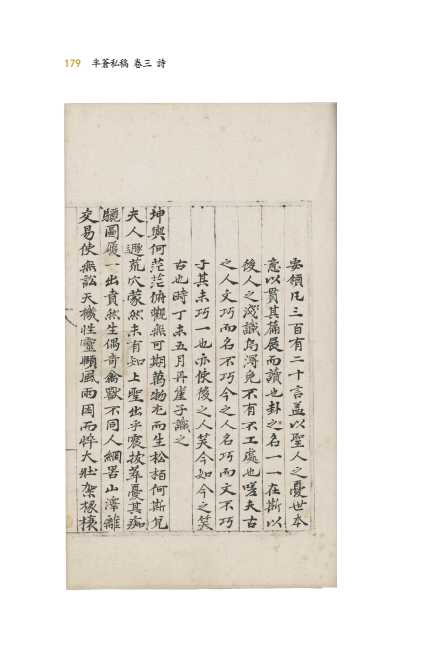 179 半蒼私稿 卷三 詩
要領凡三百有二十言盖以聖人之憂世本
意以貫其篇展而讀也卦之名一一在斯以
後人之淺識烏得免不有不工處也嗟夫古
之人文巧而名不巧今之人名巧而文不巧
于其未巧一也亦使後之人笑今如今之笑
古也時丁未五月丹崖子識之
坤輿何茫茫俯觀無可期萬物屯而生松栢何斯兒
夫人遯荒穴蒙然未有知上聖出乎震拔萃憂其痴
驪圖履一出賁然生偶奇禽獸不同人網罟山澤離
交易使無訟天機性靈頤風雨因而悴大壯架椽棲